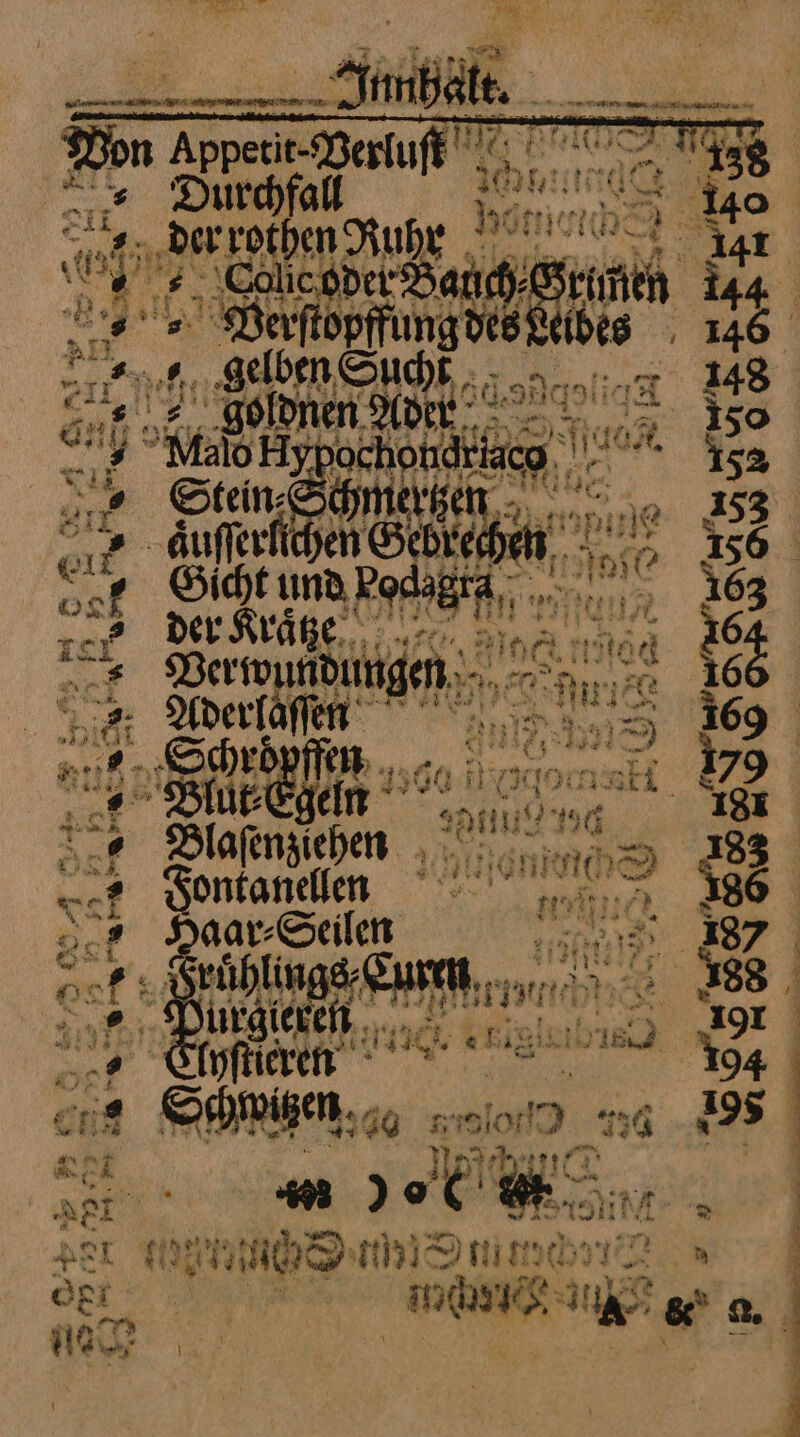 Innhalt.
Von Appetit-Verluſt 138
⸗ Durchfall 140
⸗ der rothen Ruhr 141
⸗ ⸗ Colic oder Bauch-Grim̃en 144
⸗ ⸗ Verſtopffung des Leibes 146
⸗ ⸗ gelben Sucht 148
⸗ ⸗ goldnen Ader 150
⸗ Malo Hypochondriaco 152
⸗ Stein-Schmertzen 153
⸗ aͤuſſerlichen Gebrechen 156
⸗ Gicht und Podagra 163
⸗ der Kraͤtze 164
⸗ Verwundungen 166
⸗ Aderlaſſen 169
⸗ Schroͤpffen 179
⸗ Blut-Egeln 181
⸗ Blaſenziehen 183
⸗ Fontanellen 186
⸗ Haar-Seilen 187
⸗ Fruͤhlings-Curen 188
⸗ Purgieren 191
⸗ Clyſtieren 194
⸗ Schwitzen 195